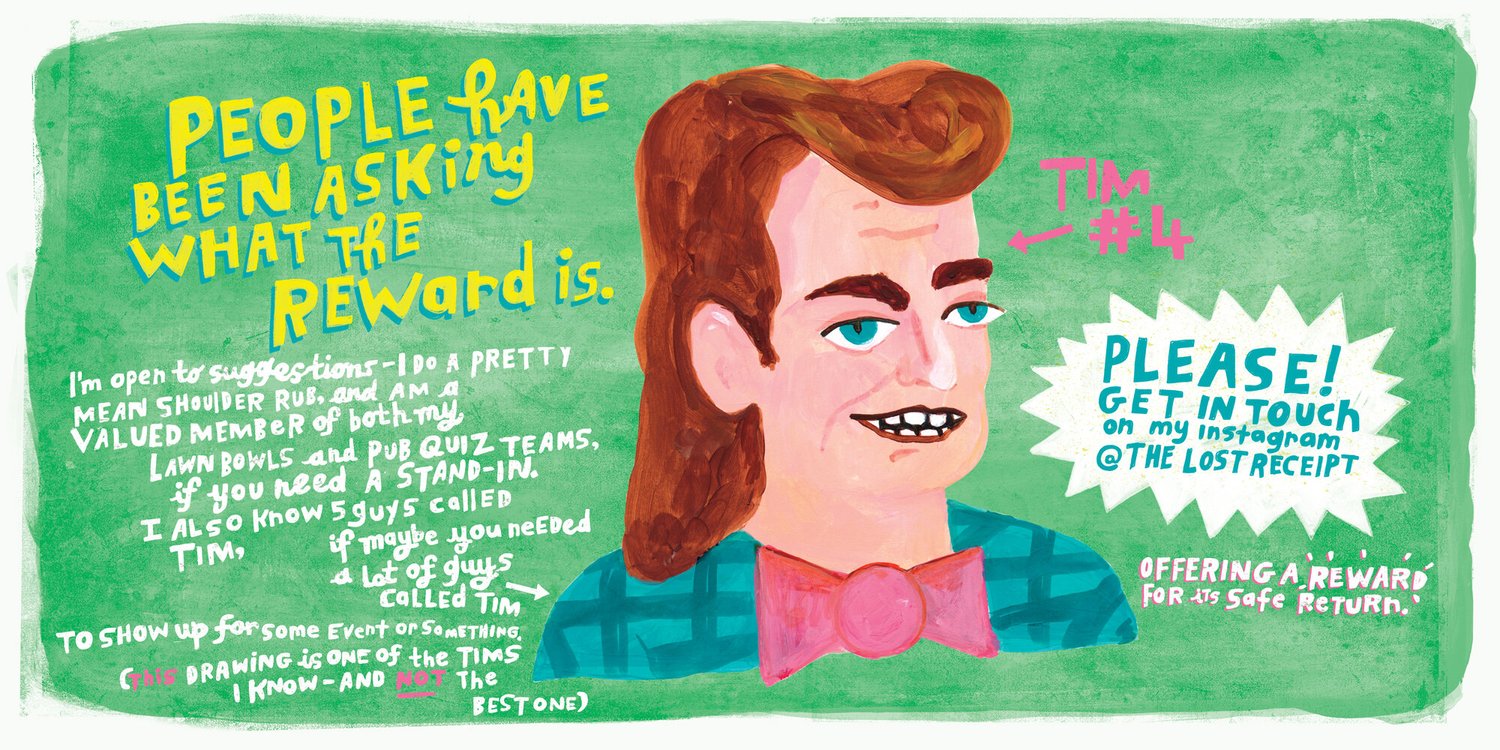 PEOPLE hAVE
BEEN ASKing
WHAT The
REWard is.
I'm open to suggestions - I DO A PRETTY
MEAN SHOULDER RUB, and AM a
VALUED MEMBeR of both my
LAWN BOWLS and PUB QUIZ TEAMS,
if you need A STAND-IN.
I ALSO Know 5 guys called
TIM,
if maybe you neeDed
a lot of guys
CaLLED TIM
TO SHOW up for Some EVenT or SoMETHING.
(This DRAWING is ONE of the TIMS
I KNOW - AND NOT The
BEST ONE)
TIM
#4
PLEASE!
GET IN Touch
on my instagram
@THE LOST RECEIPT
OFFERING A REWARD
FOR iTS Safe ReTURN.